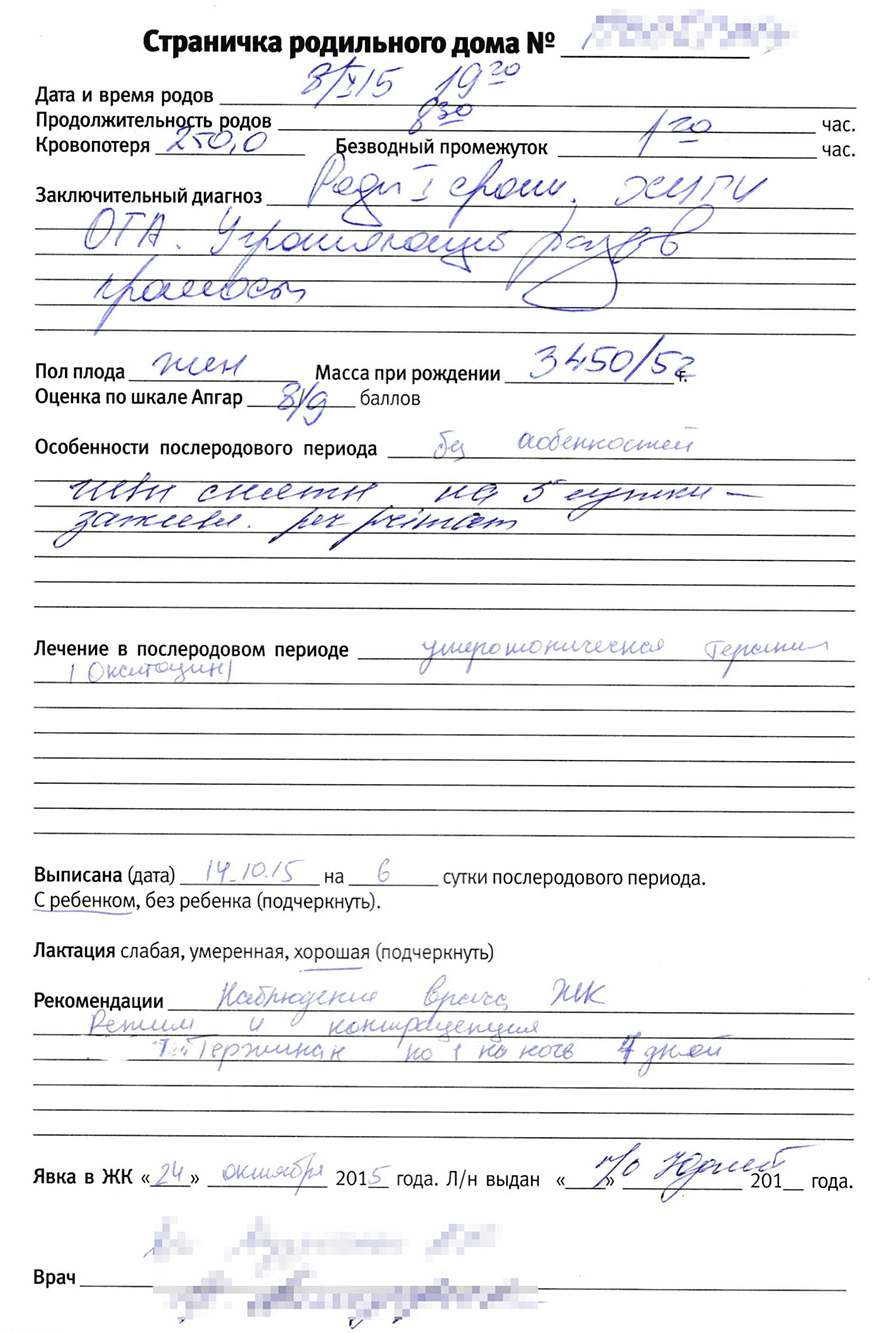 Страничка родильного дома №
Дата и время родов 8/X 15 19 20
Продолжительность родов 8 30 час.
Кровопотеря 250,0 Безводный промежуток 1 20 час.
Заключительный диагноз Роды I срочн.
ОГА. Угрожающий разрыв
промежности
Пол плода жен Масса при рождении 3450/52 г.
Оценка по шкале Апгар 8/9 баллов
Особенности послеродового периода без особенностей
швы сняты на 5 сутки –
зажили per primam
Лечение в послеродовом периоде утеротоническая терапия
(Окситоцин)
Выписана (дата) 14.10.15 на 6 сутки послеродового периода.
С ребенком, без ребенка (подчеркнуть).
Лактация слабая, умеренная, хорошая (подчеркнуть)
Рекомендации Наблюдение врача ЖК
Режим и контрацепция
Тержинан по 1 на ночь 7 дней
Явка в ЖК «24» октября 2015 года. Л/н выдан « » 201 года.
Врач